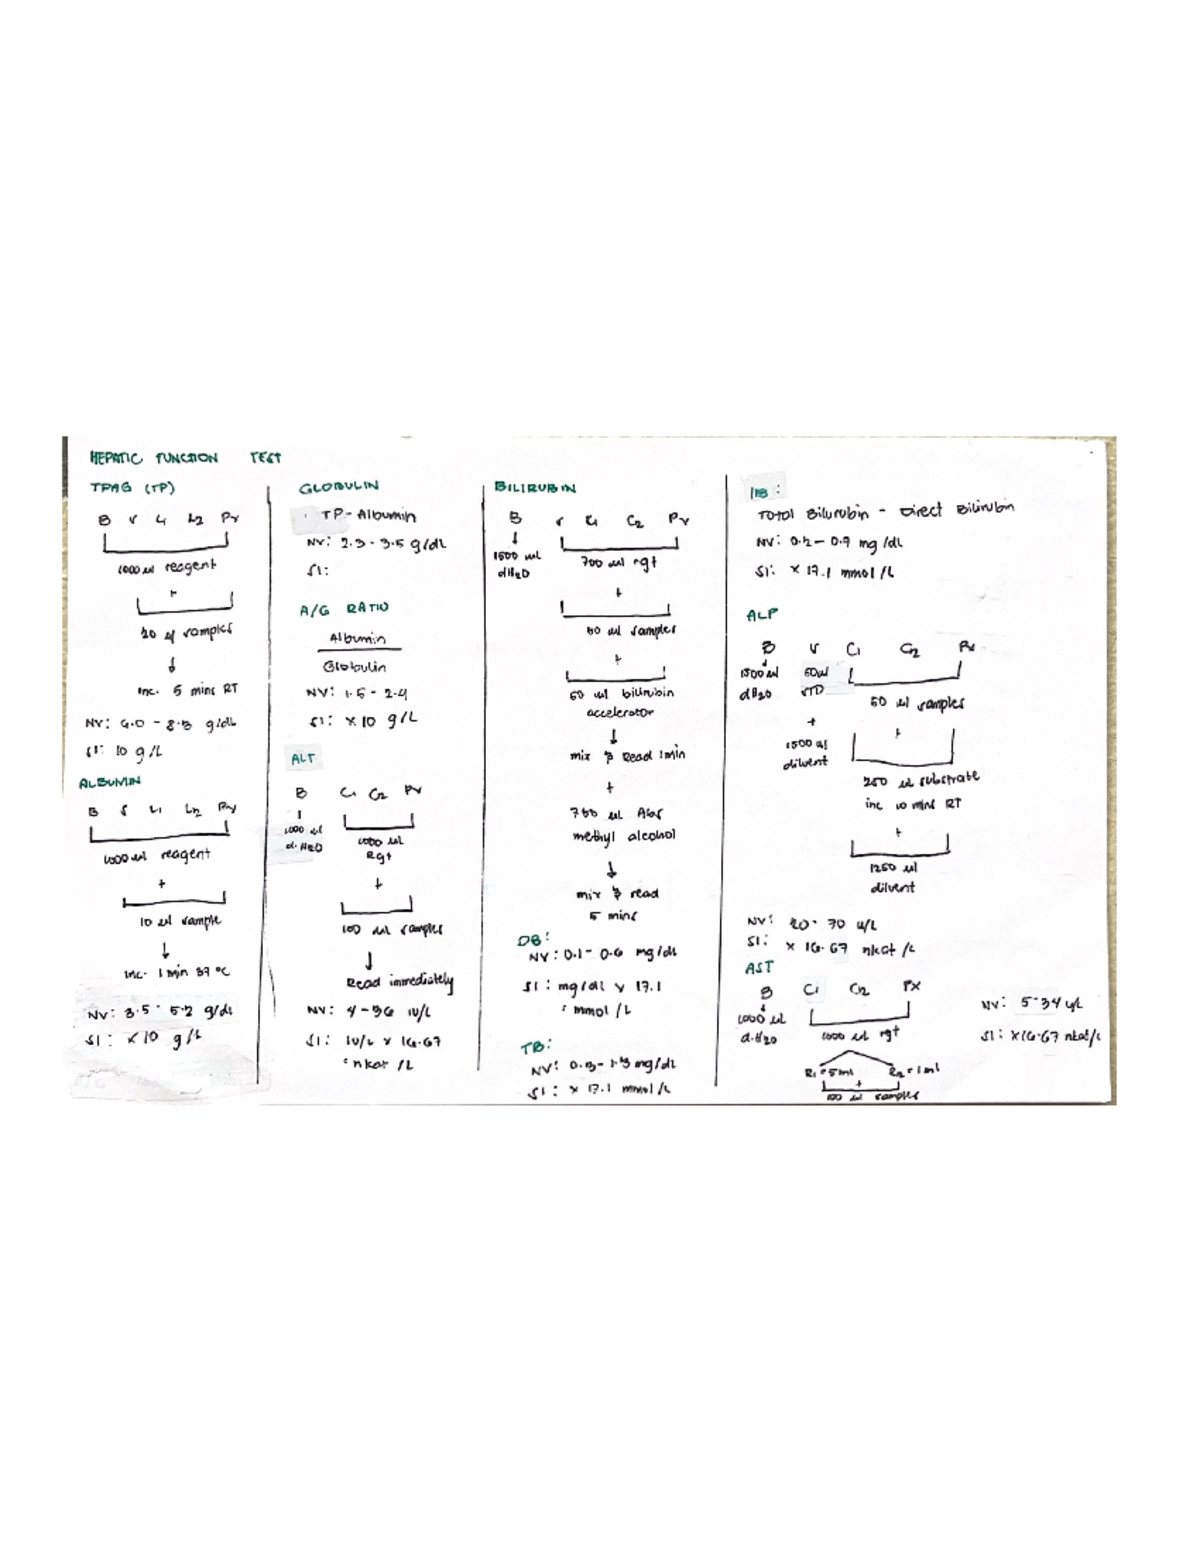 HEPATIC FUNCTION TEST
TPAG (TP)
B S C1 C2 Px
1000 ul reagent
+
20 ul samples
↓
inc. 5 mins RT
NV: 6.0 - 8.3 g/dL
SI: 10 g/L
ALBUMIN
B S C1 C2 Px
1000 ul reagent
+
10 ul sample
↓
inc. 1 min 37 °C
NV: 3.5 - 5.2 g/dL
SI: x 10 g/L
GLOBULIN
TP - Albumin
NV: 2.3 - 3.5 g/dL
SI:
A/G RATIO
Albumin
Globulin
NV: 1.5 - 2.4
SI: x 10 g/L
ALT
B C1 C2 Px
1000 ul
d. H2O
1000 ul
Rgt
+
100 ul samples
↓
Read immediately
NV: 4 - 36 IU/L
SI: IU/L x 16.67
= nkat /L
BILIRUBIN
B S C1 C2 Px
↓
1500 ul
dH2O
700 ul rgt
+
50 ul samples
+
50 ul bilirubin
accelerator
↓
mix & Read 1min
+
700 ul Abs
methyl alcohol
↓
mix & read
5 mins
DB:
NV: 0.1 - 0.6 mg/dL
SI: mg/dL x 17.1
= mmol /L
TB:
NV: 0.3 - 1.3 mg/dL
SI: x 17.1 mmol/L
IB:
Total Bilurubin - Direct Bilirubin
NV: 0.2 - 0.7 mg /dL
SI: x 17.1 mmol /L
ALP
B S C1 C2 Px
1500 ul
dH2O
50ul
STD
+
1500 ul
diluent
50 ul samples
+
250 ul substrate
inc 10 mins RT
+
1250 ul
diluent
NV: 20 - 70 u/L
SI: x 16.67 nkat /L
AST
B C1 C2 Px
↓
1000 ul
d.H2O
1000 ul rgt
R1 = 5ml R2 = 1ml
+
100 ul samples
NV: 5-34 u/L
SI: x16.67 nkat/L